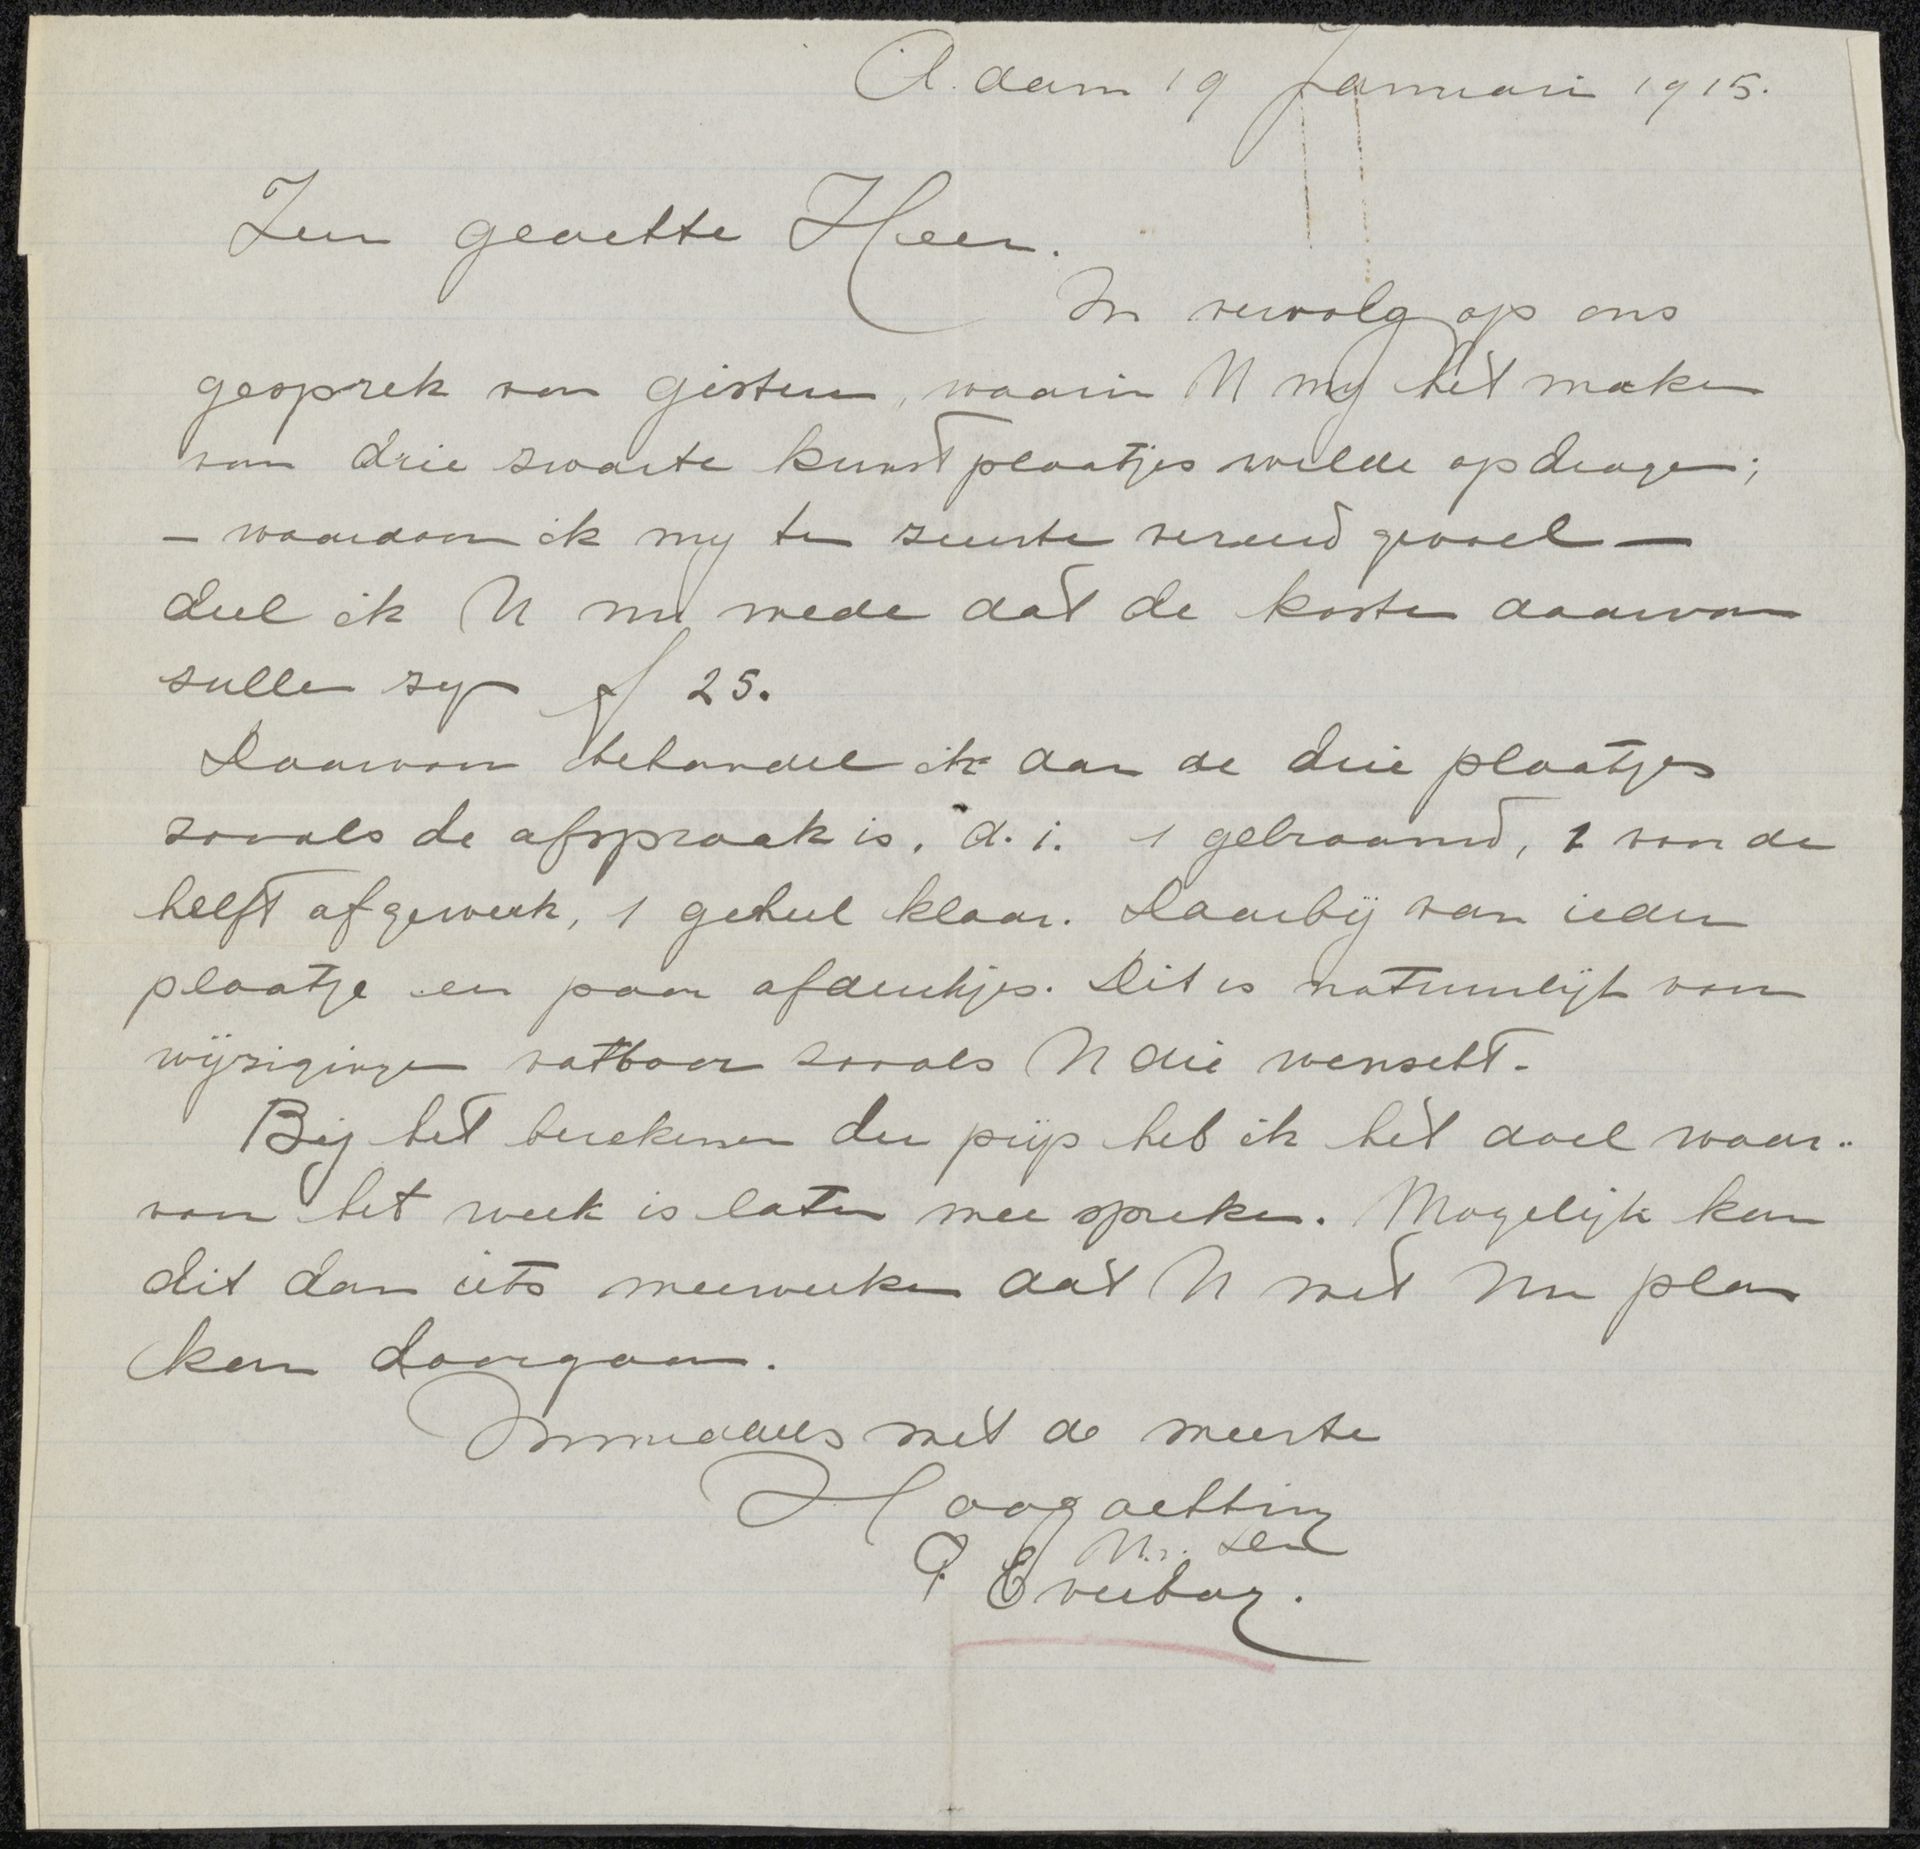 A.dam 19 Januari 1915.
Zeer geachte Heer.
In vervolg op ons
gesprek van gisteren, waarin U my het maken
van drie zwarte kunst plaatjes wilde opdragen;
– waardoor ik my ten zeerste vereerd gevoel –
deel ik U nu mede dat de kosten daarvan
zullen zyn f 25.
Daarvoor behandel ik dan de drie plaatjes
zooals de afspraak is, d.i. 1 gebraamd, 1 voor de
helft afgewerk, 1 geheel klaar. Daarbij van ieder
plaatje een paar afdrukjes. Dit is natuurlijk voor
wijzigingen vatbaar zooals U die wenscht.
Bij het berekenen der prijs heb ik het doel waar-
voor het werk is laten mee spreken. Mogelijk kan
dit dan iets meewerken dat U met Uw plan
kan doorgaan.
Inmiddels met de meeste
Hoogachting
Uw. Dw.
P. Everbag.